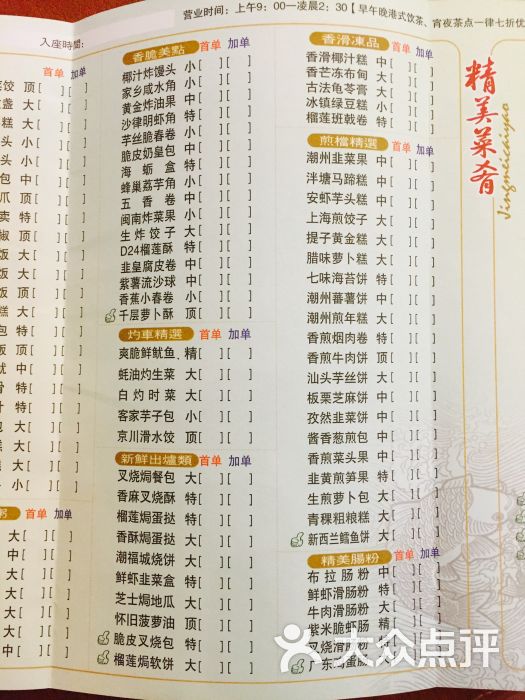 营业时间：上午9：00—凌晨2；30【早午晚港式饮茶、宵夜茶点一律七折优
入座時間：
饺 顶[ ][ ]
大[ ][ ]
糕 大[ ][ ]
头 小[ ][ ]
头 小[ ][ ]
包 中[ ][ ]
爪 顶[ ][ ]
卖 特[ ][ ]
椒 顶[ ][ ]
饭 大[ ][ ]
饭 大[ ][ ]
饭 顶[ ][ ]
糕 大[ ][ ]
包 特[ ][ ]
粥 首单 加单
香脆美點 首单 加单
椰汁炸馒头 小[ ][ ]
家乡咸水角 小[ ][ ]
黄金炸油果 中[ ][ ]
沙律明虾角 特[ ][ ]
芋丝脆春卷 小[ ][ ]
脆皮奶皇包 中[ ][ ]
海蛎盒 特[ ][ ]
蜂巢荔芋角 小[ ][ ]
五香卷 中[ ][ ]
闽南炸菜果 小[ ][ ]
生炸饺子 大[ ][ ]
D24榴莲酥 特[ ][ ]
韭皇腐皮卷 中[ ][ ]
紫薯流沙球 中[ ][ ]
香蕉小春卷 小[ ][ ]
千层萝卜酥 顶[ ][ ]
灼車精選 首单 加单
爽脆鲜鱿鱼 精[ ][ ]
蚝油灼生菜 大[ ][ ]
白灼时菜 大[ ][ ]
客家芋子包 小[ ][ ]
京川滑水饺 顶[ ][ ]
新鮮出爐類 首单 加单
叉烧焗餐包 大[ ][ ]
香麻叉烧酥 特[ ][ ]
榴莲焗蛋挞 特[ ][ ]
香酥焗蛋挞 中[ ][ ]
潮福城烧饼 大[ ][ ]
鲜虾韭菜盒 特[ ][ ]
芝士焗地瓜 大[ ][ ]
怀旧菠萝油 顶[ ][ ]
脆皮叉烧包 特[ ][ ]
榴莲焗软饼 大[ ][ ]
香滑凍品 首单 加单
香滑椰汁糕 中[ ][ ]
香芒冻布甸 大[ ][ ]
古法龟苓膏 大[ ][ ]
冰镇绿豆糕 小[ ][ ]
榴莲班戟卷 特[ ][ ]
煎檔精選 首单 加单
潮州韭菜果 中[ ][ ]
泮塘马蹄糕 中[ ][ ]
安虾芋头糕 中[ ][ ]
上海煎饺子 大[ ][ ]
提子黄金糕 大[ ][ ]
腊味萝卜糕 大[ ][ ]
七味海苔饼 特[ ][ ]
潮州蕃薯饼 中[ ][ ]
潮州煎年糕 大[ ][ ]
香煎烟肉卷 特[ ][ ]
香煎牛肉饼 顶[ ][ ]
汕头芋丝饼 大[ ][ ]
板栗芝麻饼 中[ ][ ]
孜然韭菜饼 中[ ][ ]
酱香葱煎包 中[ ][ ]
香煎菜头果 中[ ][ ]
韭黄煎笋果 特[ ][ ]
生煎萝卜包 大[ ][ ]
青稞粗粮糕 大[ ][ ]
新西兰鳕鱼饼 大[ ][ ]
精美腸粉 首单 加单
布拉肠粉 中[ ][ ]
鲜虾滑肠粉 特[ ][ ]
牛肉滑肠粉 大[ ][ ]
紫米脆虾肠 精[ ][ ]
叉烧滑肠粉 特[ ][ ]
广东鸡蛋肠 大[ ][ ]
精美菜肴
Jingmeicaiyao
大众点评